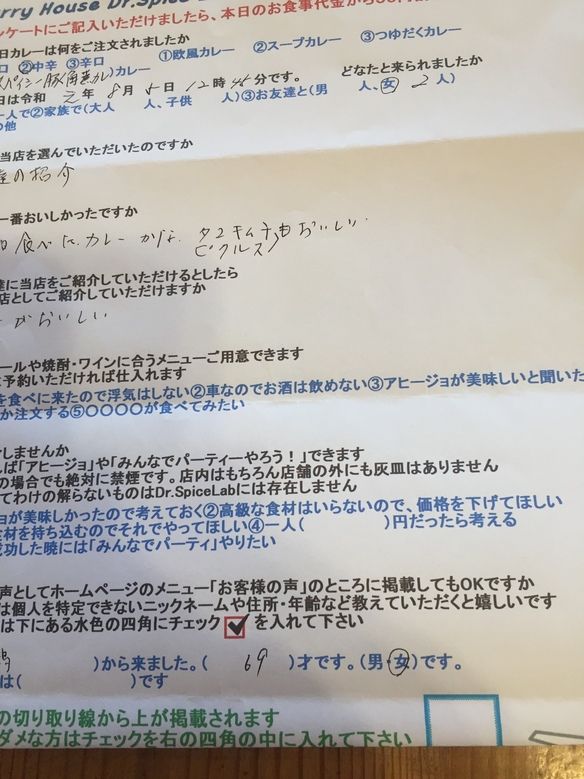 urry House Dr.Spice
ンケートにご記入いただけましたら、本日のお食事代金から
日カレーは何をご注文されましたか
口 ②中辛 ③辛口 ①欧風カレー ②スープカレー ③つゆだくカレー
スパイシー豚(角煮カレ)カレー
日は令和 元 年 8 月 5 日 12 時 45 分です。 どなたと来られましたか
一人で②家族で(大人 人、子供 人)③お友達と(男 人、女 2 人)
の他
当店を選んでいただいたのですか
達の紹介
一番おいしかったですか
日食べたカレーかな、タコキムチもおいしい
ピクルス
達に当店をご紹介していただけるとしたら
店としてご紹介していただけますか
がおいしい
ールや焼酎・ワインに合うメニューご用意できます
ご予約いただければ仕入れます
を食べに来たので浮気はしない②車なのでお酒は飲めない③アヒージョが美味しいと聞いた
か注文する⑤〇〇〇〇が食べてみたい
しませんか
れば「アヒージョ」や「みんなでパーティーやろう!」できます
の場合でも絶対に禁煙です。店内はもちろん店舗の外にも灰皿はありません
てわけの解らないものはDr.SpiceLabには存在しません
ョが美味しかったので考えておく②高級な食材はいらないので、価格を下げてほしい
食材を持ち込むのでそれでやってほしい④一人( )円だったら考える
成功した暁には「みんなでパーティ」やりたい
声としてホームページのメニュー「お客様の声」のところに掲載してもOKですか
は個人を特定できないニックネームや住所・年齢など教えていただくと嬉しいです
は下にある水色の四角にチェック を入れて下さい
)から来ました。( 69 )才です。(男・女)です。
は( )です
の切り取り線から上が掲載されます
ダメな方はチェックを右の四角の中に入れて下さい